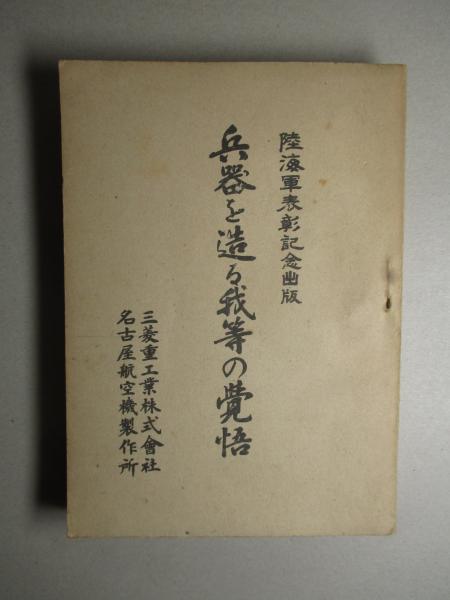 陸海軍表彰記念出版
兵器を造る我等の覺悟
三菱重工業株式會社
名古屋航空機製作所